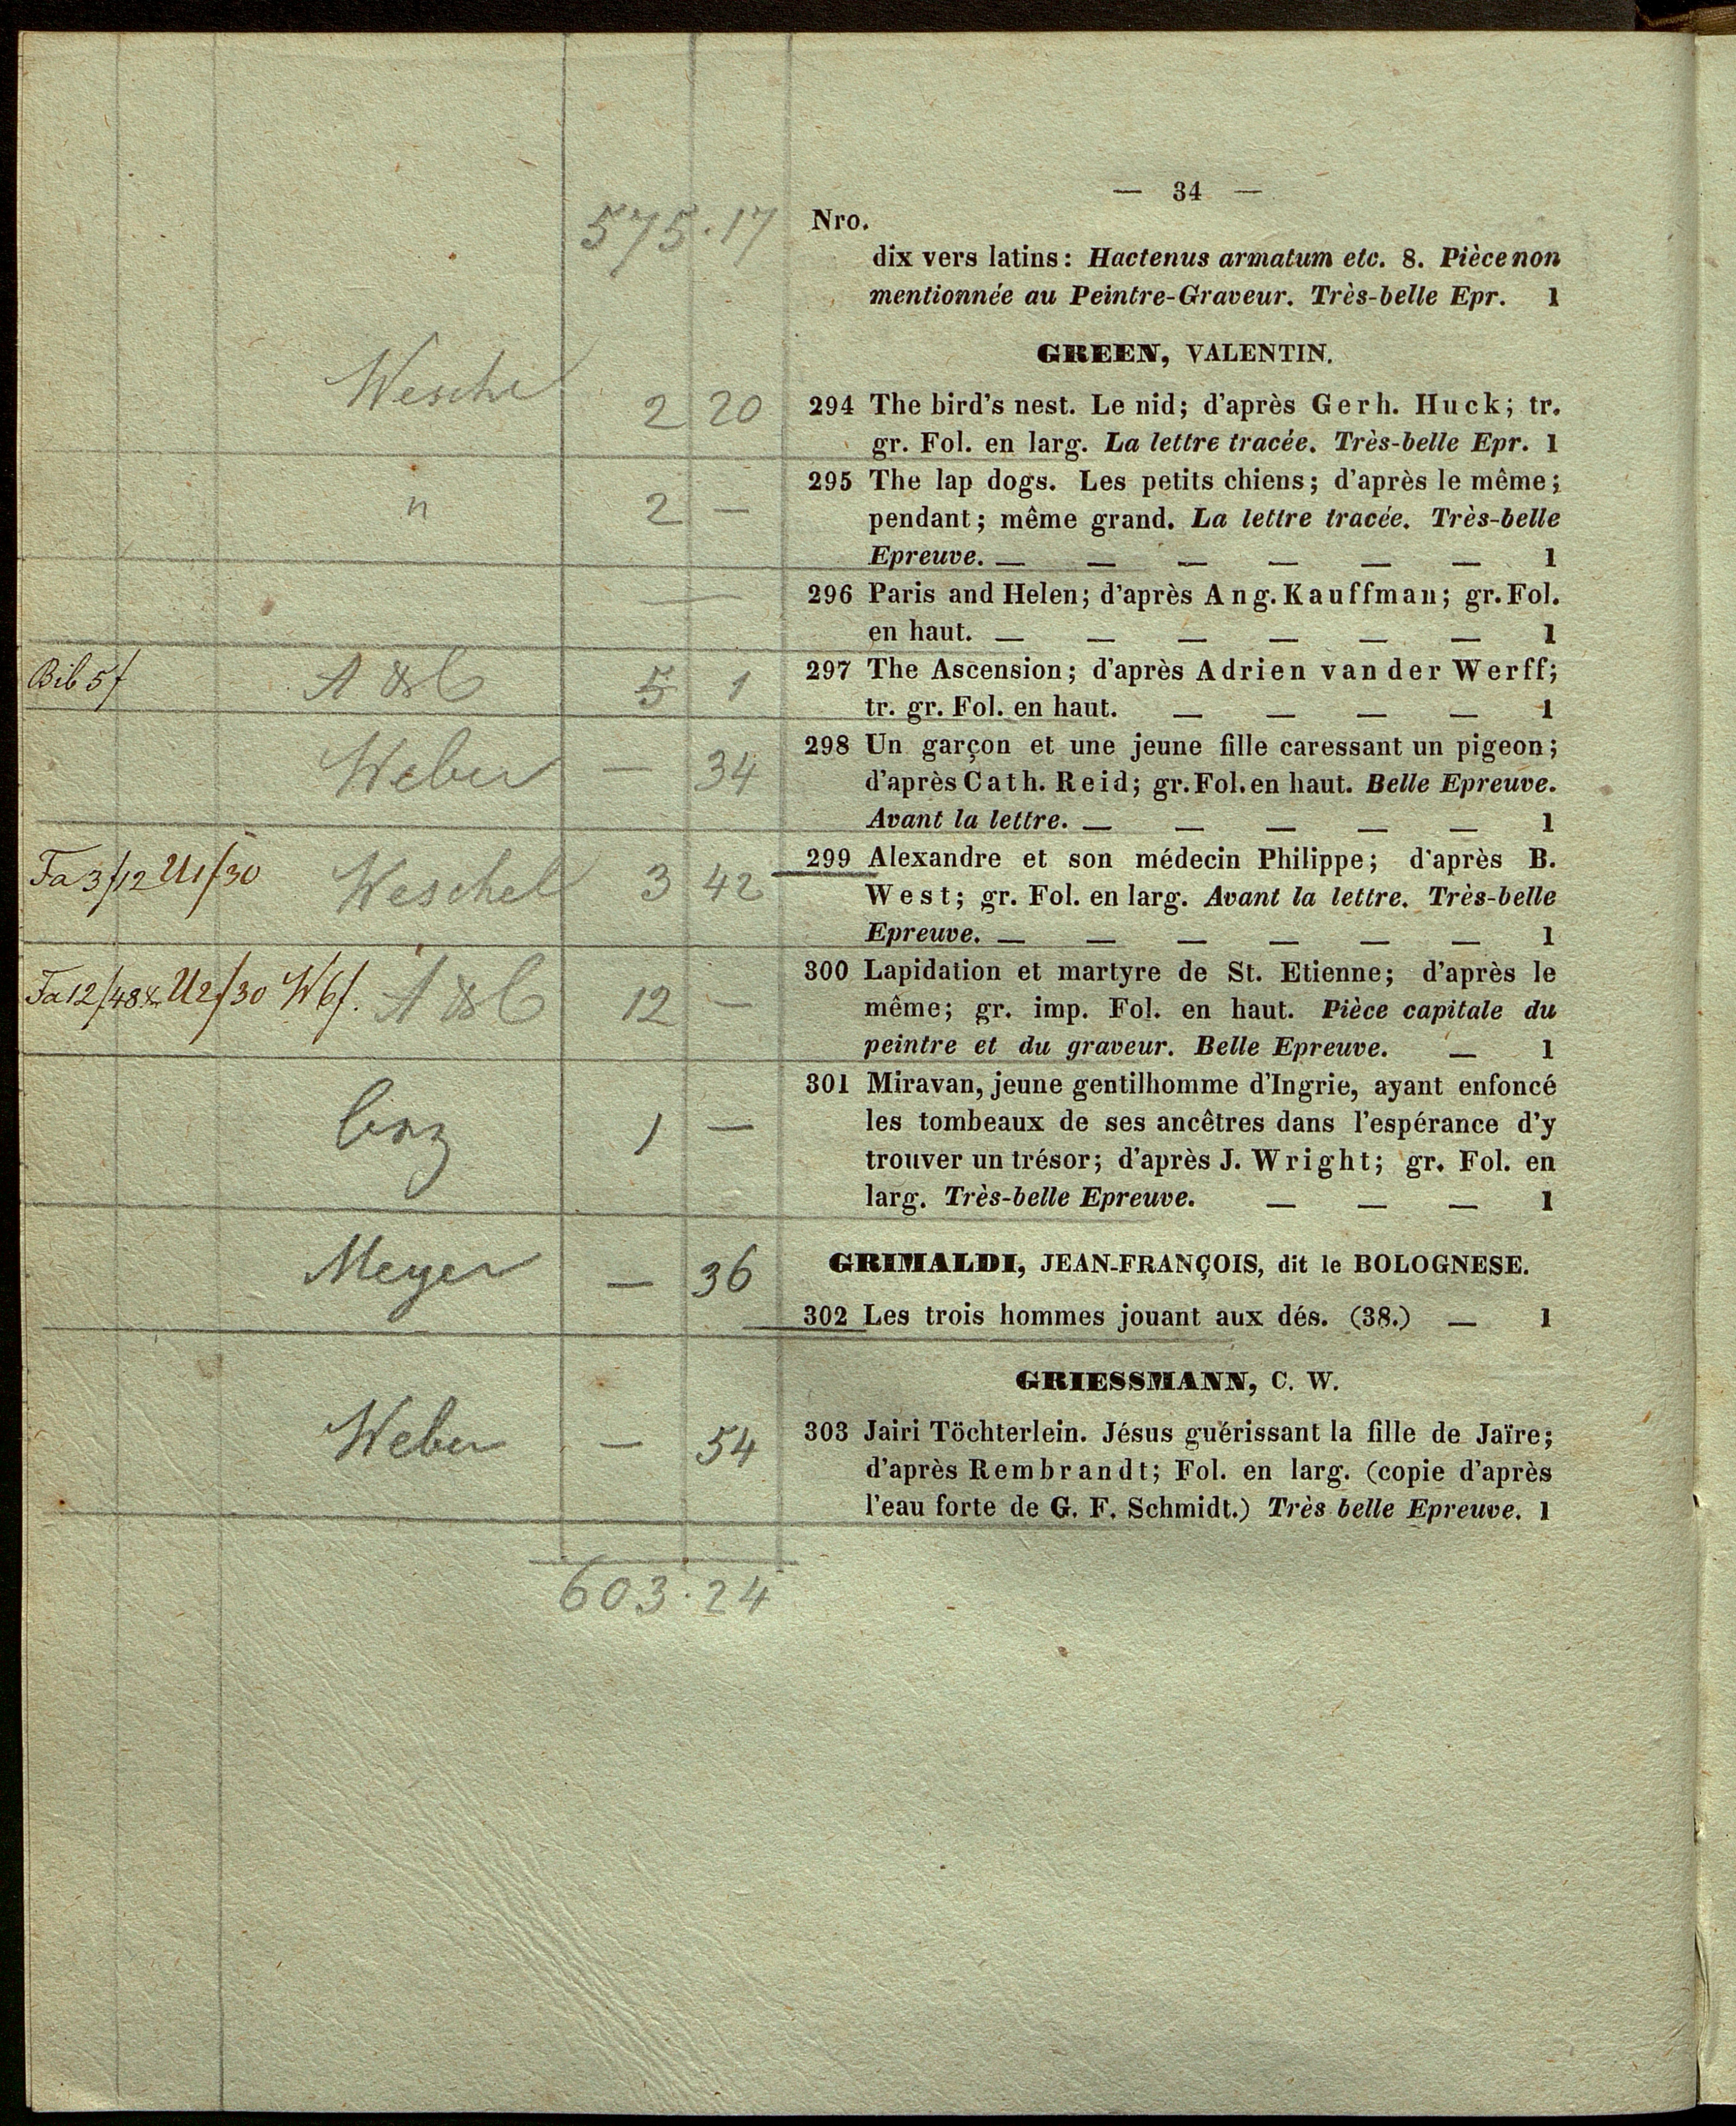 — 34 —
575.17
Nro.
dix vers latins: Hactenus armatum etc. 8. Pièce non
mentionnée au Peintre-Graveur. Très-belle Epr. 1
GREEN, VALENTIN.
Wesche 2 20
294 The bird's nest. Le nid; d'après Gerh. Huck; tr.
gr. Fol. en larg. La lettre tracée. Très-belle Epr. 1
" 2 —
295 The lap dogs. Les petits chiens; d'après le même;
pendant; même grand. La lettre tracée. Très-belle
Epreuve. — — — — — — 1
—
296 Paris and Helen; d'après Ang. Kauffman; gr. Fol.
en haut. — — — — — — 1
Bib 5f A & C 5 1
297 The Ascension; d'après Adrien van der Werff;
tr. gr. Fol. en haut. — — — — 1
Weber — 34
298 Un garçon et une jeune fille caressant un pigeon;
d'après Cath. Reid; gr. Fol. en haut. Belle Epreuve.
Avant la lettre. — — — — — 1
Fa 3/12 U1/30 Weschel 3 42
299 Alexandre et son médecin Philippe; d'après B.
West; gr. Fol. en larg. Avant la lettre. Très-belle
Epreuve. — — — — — — 1
Fa 12/48x U2/30 W6f. A & C 12 —
300 Lapidation et martyre de St. Etienne; d'après le
même; gr. imp. Fol. en haut. Pièce capitale du
peintre et du graveur. Belle Epreuve. — 1
1 —
301 Miravan, jeune gentilhomme d'Ingrie, ayant enfoncé
les tombeaux de ses ancêtres dans l'espérance d'y
trouver un trésor; d'après J. Wright; gr. Fol. en
larg. Très-belle Epreuve. — — — 1
Meyer — 36
GRIMALDI, JEAN-FRANÇOIS, dit le BOLOGNESE.
302 Les trois hommes jouant aux dés. (38.) — 1
GRIESSMANN, C. W.
Weber — 54
303 Jairi Töchterlein. Jésus guérissant la fille de Jaïre;
d'après Rembrandt; Fol. en larg. (copie d'après
l'eau forte de G. F. Schmidt.) Très belle Epreuve. 1
603.24